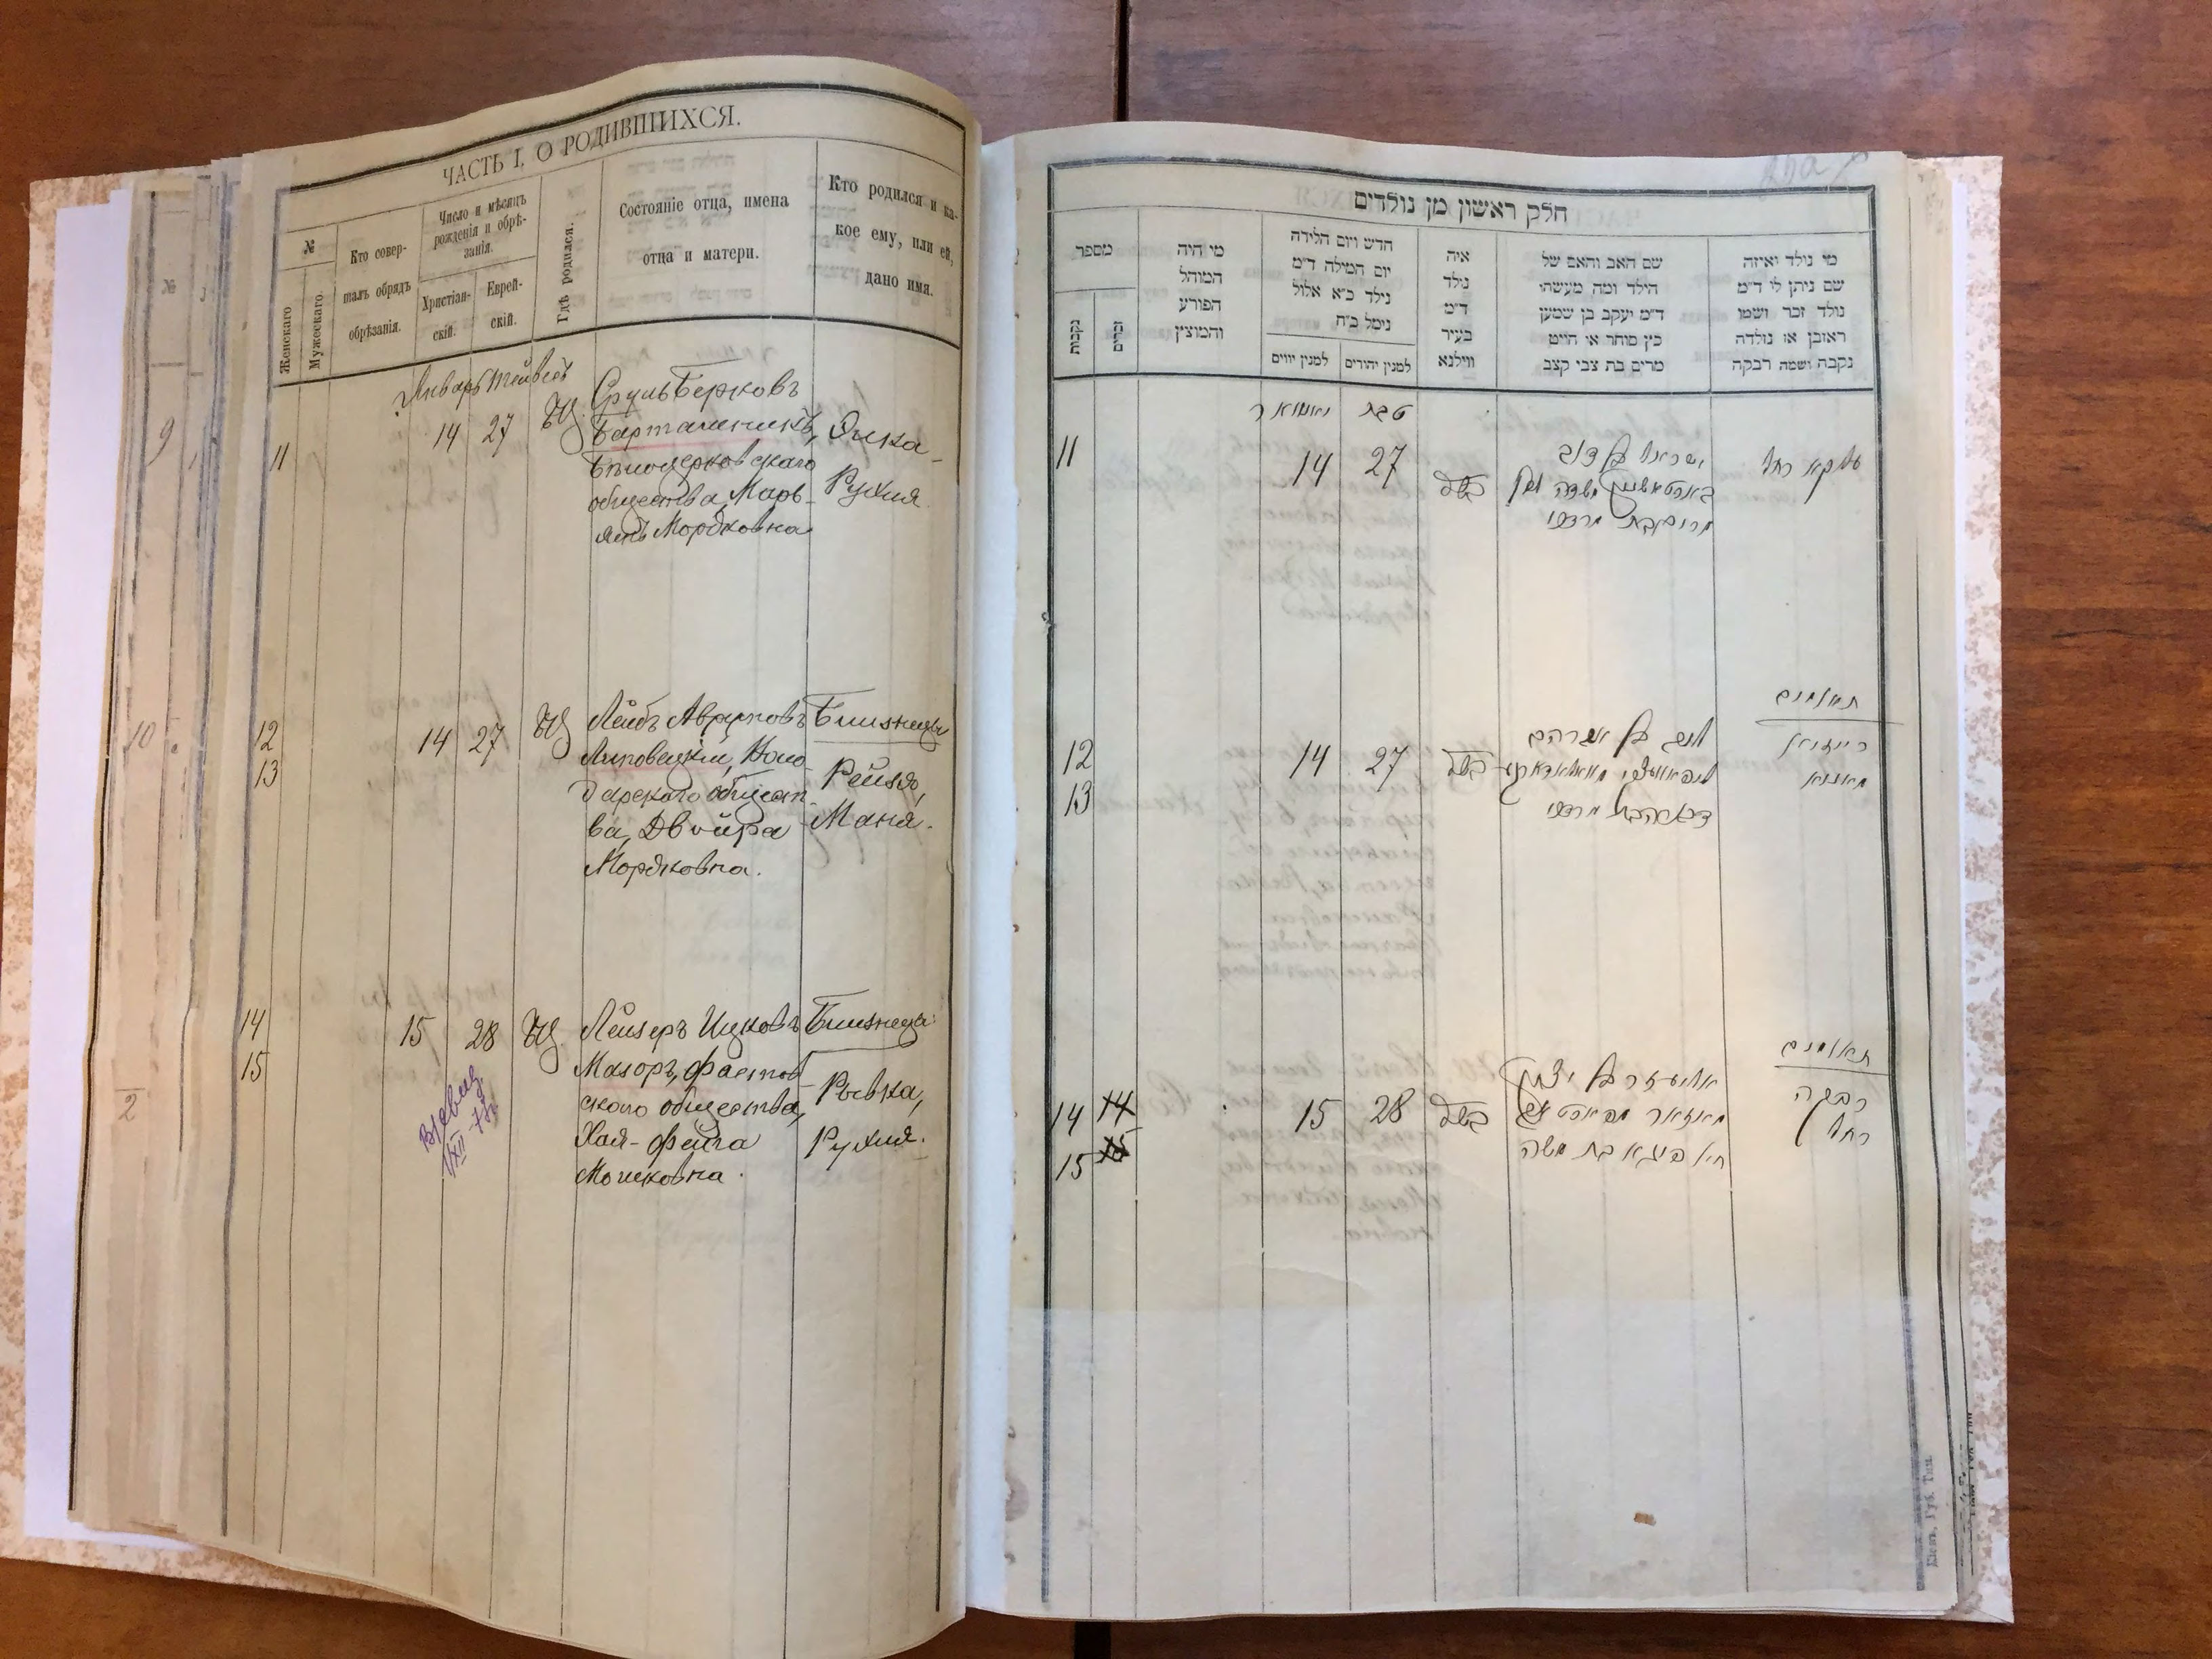 ЧАСТЬ I, О РОДИВШИХСЯ.
№
Женскаго
Мужескаго.
Кто совер-
шалъ обрядъ
обрѣзанія.
Число и мѣсяцъ
рожденія и обрѣ-
занія.
Христіан-
скій.
Еврей-
скій.
Гдѣ родился.
Состояніе отца, имена
отца и матери.
Кто родился и ка-
кое ему, или ей,
дано имя.
Январь Тейвесъ
11 14 27 БЦ. Сруль Берковъ
Бѣлоцерковскаго
общества, Марь-
Мордковна
Элка-
Рухля.
12 14 27 БЦ Лейбъ Аврумовъ
13
Липовецкій, Воло-
дарскаго общест-
ва, Двойра
Мордковна.
Близнецы
Рейзя,
Маня.
14 15 28 БЦ. Лейзеръ Ицковъ
15
Мазоръ, Фастов
скаго общества,
Хая-Фейга
Мошковна.
Близнецы
Ривка,
Рухля.
9
10
2
חלק ראשון מן נולדים
מספר
נקבות
זכרים
מי היה
המוהל
הפורע
והמוצץ
חדש ויום הלידה
יום המילה ד״מ
נילד כ״א אלול
נימל כ״ח
למנין יווים
למנין יהודים
איה
נולד
ד״מ
בעיר
ווילנא
שם האב והאם של
הילד ומה מעשהו
ד״מ יעקב בן שמען
כץ סוחר או חייט
מרים בת צבי קצב
מי נולד ואיזה
שם ניתן לו ד״מ
נולד זכר ושמו
ראובן או נולדה
נקבה ושמה רבקה
יאנואר טבת
11 14 27 ישראל בן דוב
עלקא רחל
תאומים
12 14 27 לייב בן אברהם
13
רייזיא
מאניא
תאומים
14 14 15 28 אליעזר בן יצחק
15 15
חיא פיגא בת משה
רבקה
רחל
Кіевъ, Губ. Тип.